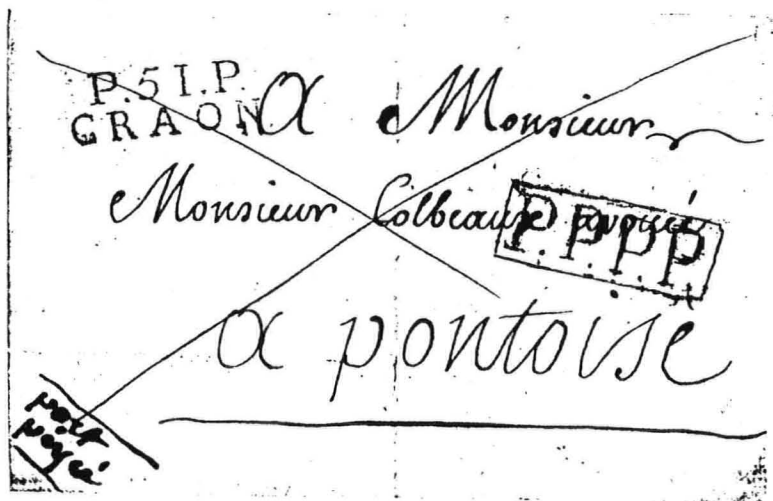 P.51.P.
CRAON
A Monsieur
Monsieur Colbeaux avoué
P.P.P.P.
a pontoise
port
payé